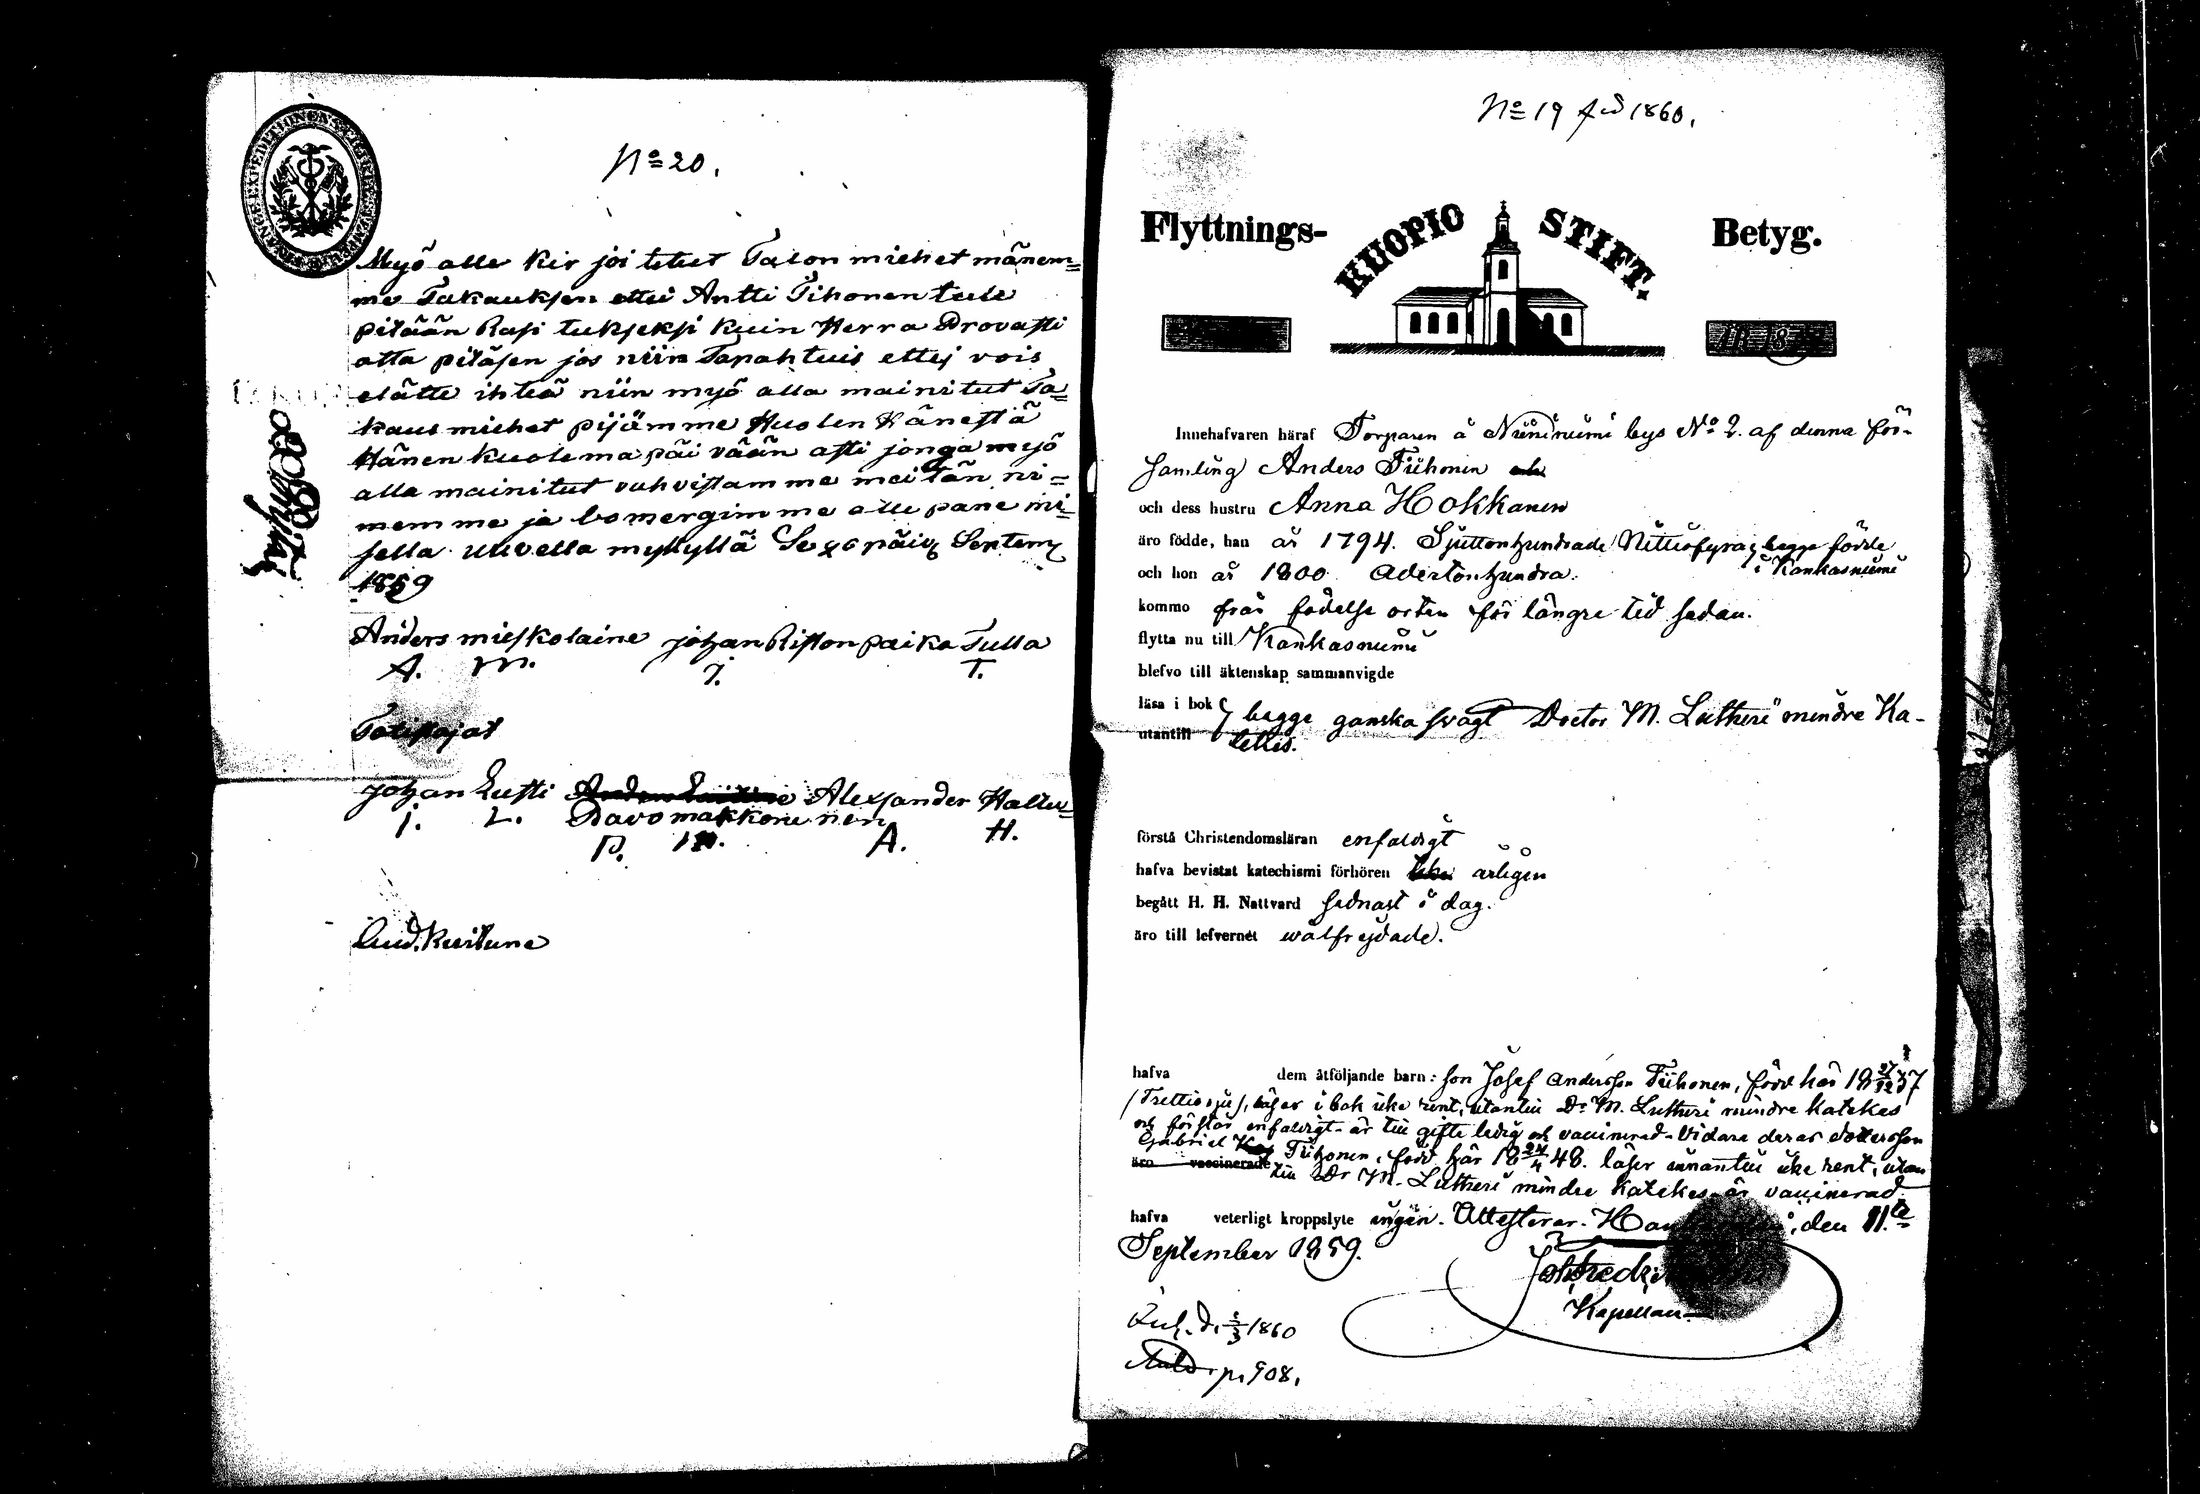 No 20.
Myö alle kir joi tetut Talon miehet mänem=
me Takauksen ettei Antti Tihonen tule
pitään Rasi tukseksi kuin Herra Provasti
atta pitäjen jos niin Tapahtuis ettej vois
elätte ihteä niin myö alla mainitut Ta=
kaus miehet pijämme Huolen Hänestä
Hänen kuolema päi vään asti jonga myö
alla mainitut vahvistamme meitän ni=
memme ja bomergimme alle pane mi=
sella uuvella myllyllä päiv Septem
1859
Anders mieskolaine johan Riston paika Tulla
A. m. J. T.
Totistajat
johan Lusti Alexander Haltu=
J. L. Pavo makkone nen
P. m. A. H.
And. Kuitune
No 19 f. d 1860.
Flyttnings- KUOPIO STIFT. Betyg.
ÅR 18
Innehafvaren häraf Torparen å Niininiemi bys No 2. af denna för-
samling Anders Tiihonen
och dess hustru Anna Hokkanen
äro födde, han år 1794. Sjuttonhundrade Nittiofyra, begge födde
och hon år 1800 Adertonhundra. i Kankasniemi
kommo från födelse orten för längre tid sedan.
flytta nu till Kankasniemi
blefvo till äktenskap sammanvigde
läsa i bok begge ganska svagt Doctor M. Lutheri mindre Ka-
utantill teches.
förstå Christendomsläran enfaldigt
hafva bevistat katechismi förhören årligen
begått H. H. Nattvard sednast i dag.
äro till lefvernet wälfrejdade.
hafva dem åtföljande barn: son Josef Andersson Tiihonen, född här 18 27/12 37
(Trettiosju), läser i bok icke rent, utantill Dr M. Lutheri mindre Katekes
och förstår enfaldigt - är till gifte ledig och vaccinerad - Vidare deras dotterson
Gabriel Tiihonen, född här 18 24/4 48. läser innantill icke rent, utan
äro vaccinerade till Dr M. Lutheri mindre Katekes är vaccinerad.
hafva veterligt kroppslyte ingen. Attesterar. den 11.te
September 1859.
Kapellan.
Inl. d. 5/3 1860
p. 908.